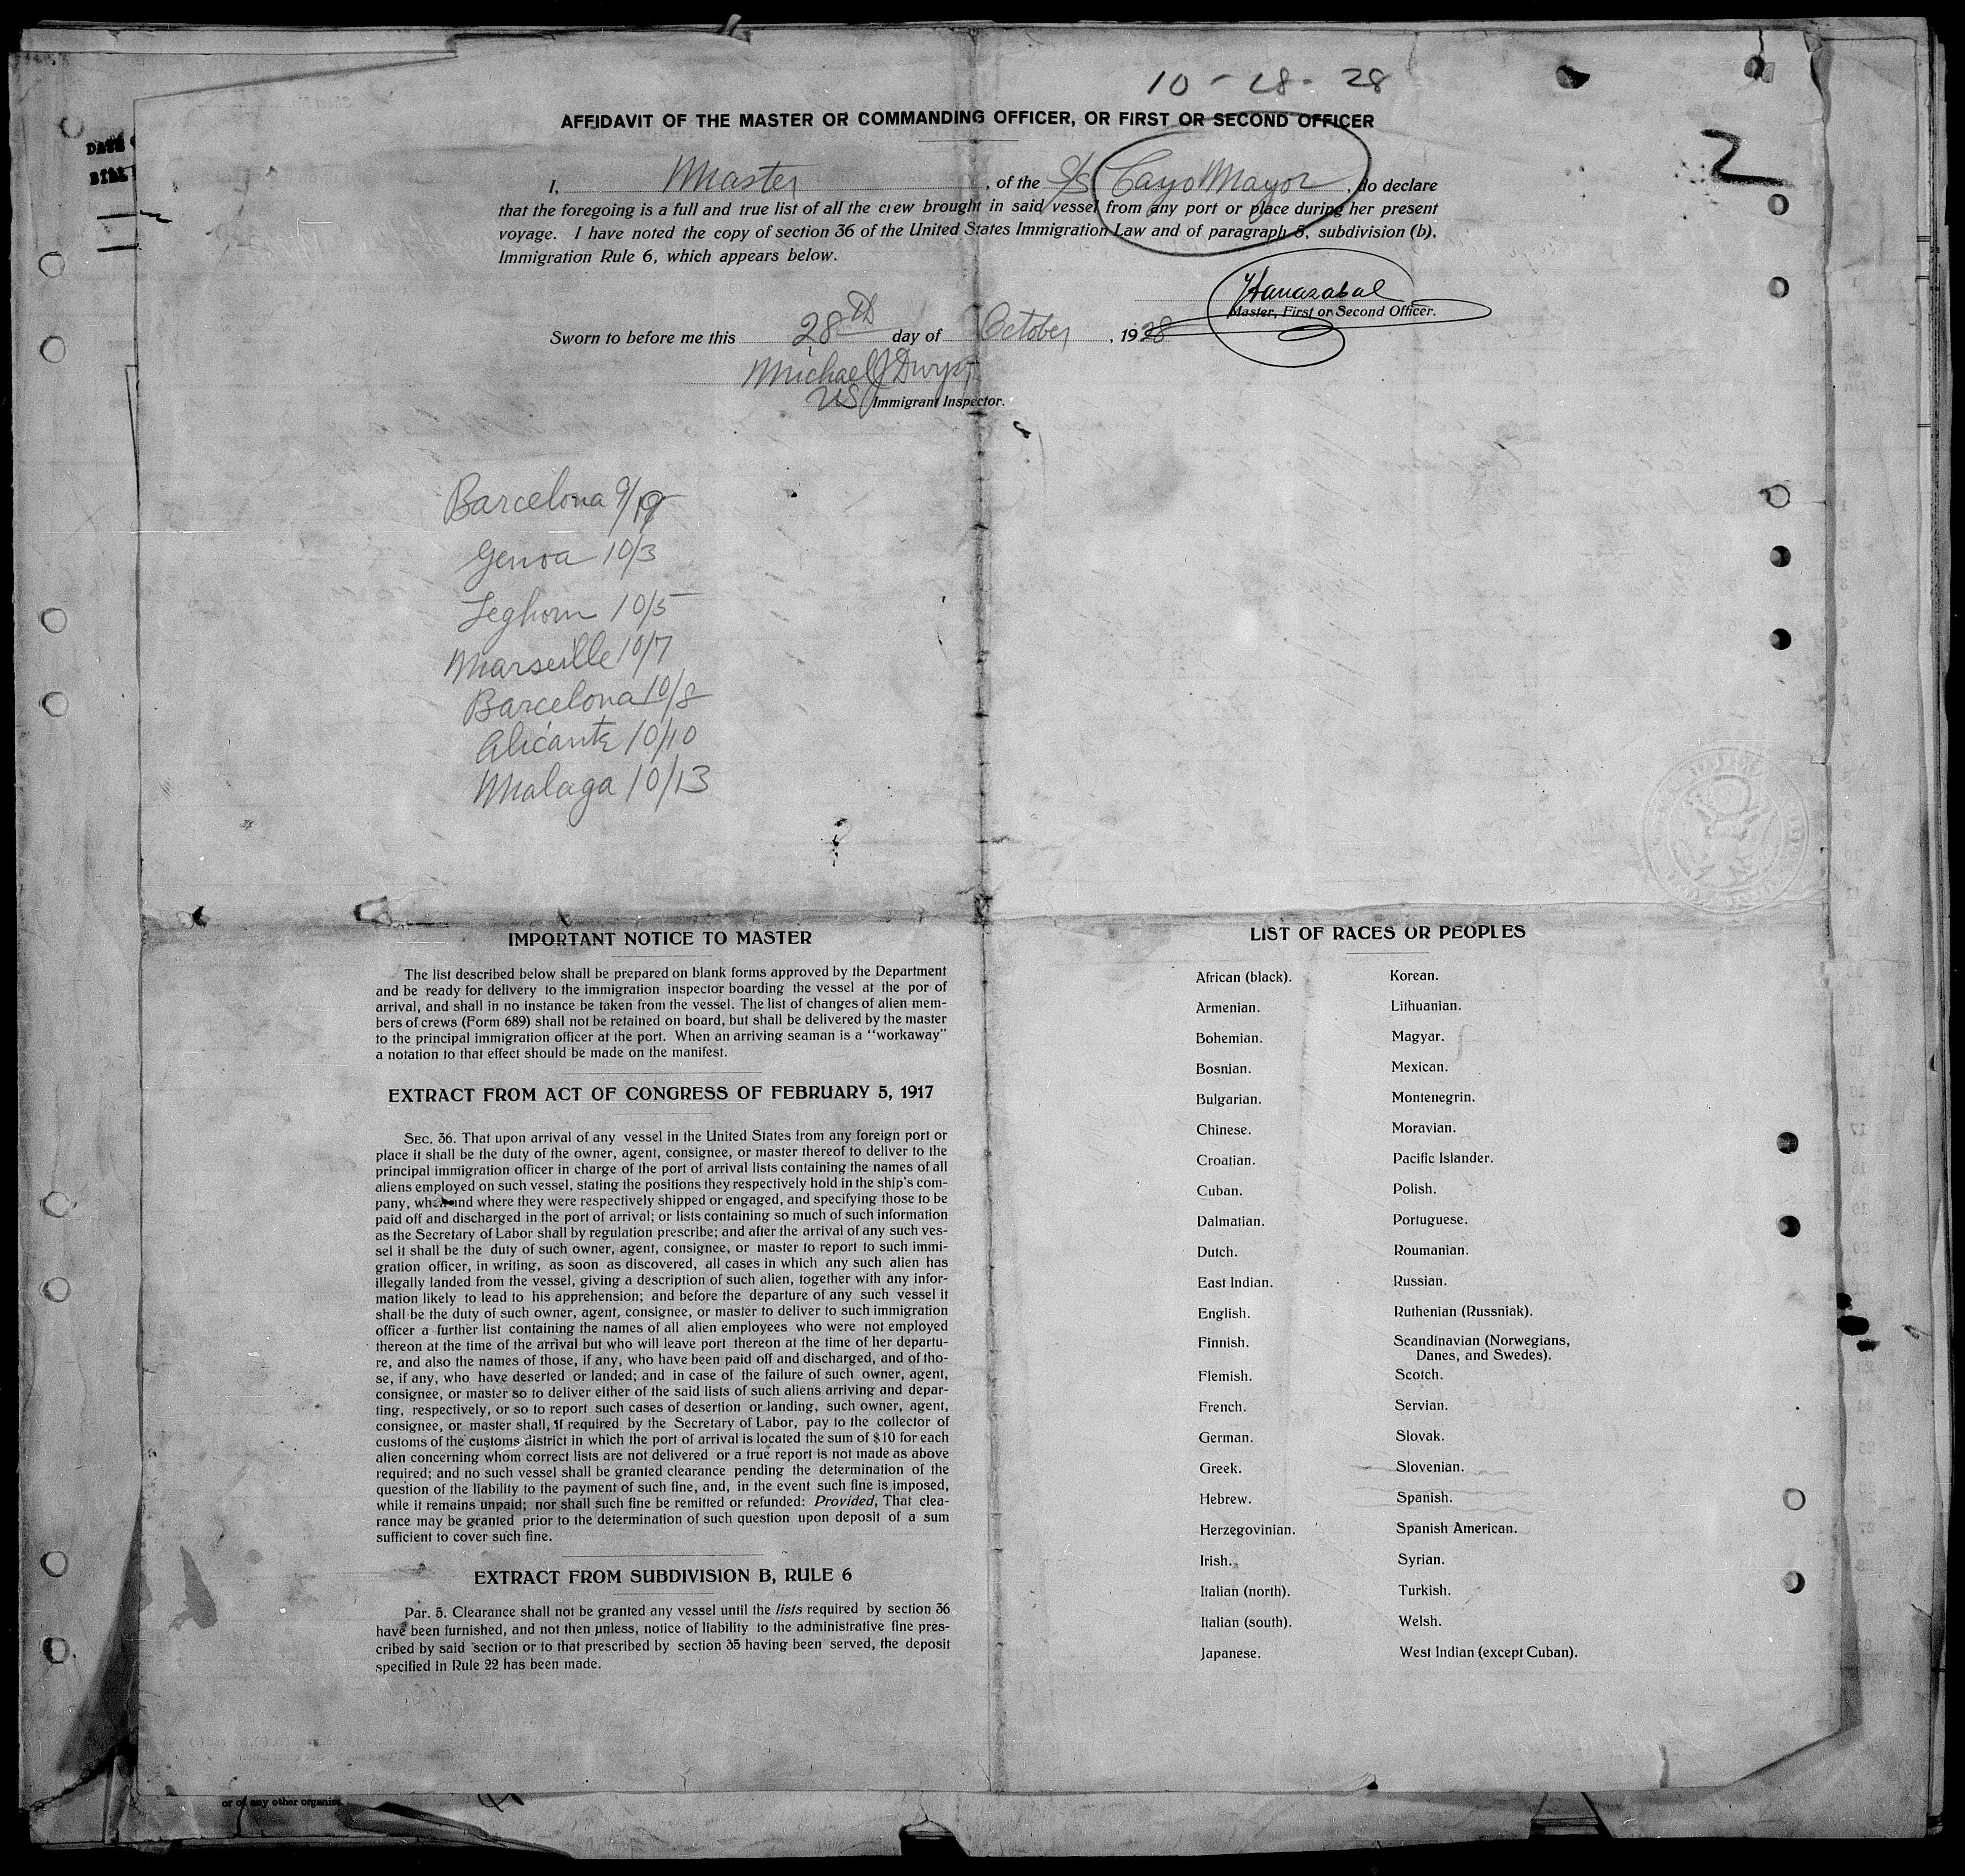 10-28-28
AFFIDAVIT OF THE MASTER OR COMMANDING OFFICER, OR FIRST OR SECOND OFFICER
2
I, Master, of the S/S Cayo Mayor, do declare
that the foregoing is a full and true list of all the crew brought in said vessel from any port or place during her present
voyage. I have noted the copy of section 36 of the United States Immigration Law and of paragraph 5, subdivision (b),
Immigration Rule 6, which appears below.
Master, First or Second Officer.
Sworn to before me this 28th day of October, 1928
Michael J Dwyer
US Immigrant Inspector.
Barcelona 9/19
Genoa 10/3
Leghorn 10/5
Marseille 10/7
Barcelona 10/8
Alicante 10/10
Malaga 10/13
IMPORTANT NOTICE TO MASTER
The list described below shall be prepared on blank forms approved by the Department
and be ready for delivery to the immigration inspector boarding the vessel at the por of
arrival, and shall in no instance be taken from the vessel. The list of changes of alien mem-
bers of crews (Form 689) shall not be retained on board, but shall be delivered by the master
to the principal immigration officer at the port. When an arriving seaman is a "workaway"
a notation to that effect should be made on the manifest.
EXTRACT FROM ACT OF CONGRESS OF FEBRUARY 5, 1917
SEC. 36. That upon arrival of any vessel in the United States from any foreign port or
place it shall be the duty of the owner, agent, consignee, or master thereof to deliver to the
principal immigration officer in charge of the port of arrival lists containing the names of all
aliens employed on such vessel, stating the positions they respectively hold in the ship's com-
pany, when and where they were respectively shipped or engaged, and specifying those to be
paid off and discharged in the port of arrival; or lists containing so much of such information
as the Secretary of Labor shall by regulation prescribe; and after the arrival of any such ves-
sel it shall be the duty of such owner, agent, consignee, or master to report to such immi-
gration officer, in writing, as soon as discovered, all cases in which any such alien has
illegally landed from the vessel, giving a description of such alien, together with any infor-
mation likely to lead to his apprehension; and before the departure of any such vessel it
shall be the duty of such owner, agent, consignee, or master to deliver to such immigration
officer a further list containing the names of all alien employees who were not employed
thereon at the time of the arrival but who will leave port thereon at the time of her departu-
re, and also the names of those, if any, who have been paid off and discharged, and of tho-
se, if any, who have deserted or landed; and in case of the failure of such owner, agent,
consignee, or master so to deliver either of the said lists of such aliens arriving and depar-
ting, respectively, or so to report such cases of desertion or landing, such owner, agent,
consignee, or master shall, if required by the Secretary of Labor, pay to the collector of
customs of the customs district in which the port of arrival is located the sum of $10 for each
alien concerning whom correct lists are not delivered or a true report is not made as above
required; and no such vessel shall be granted clearance pending the determination of the
question of the liability to the payment of such fine, and, in the event such fine is imposed,
while it remains unpaid; nor shall such fine be remitted or refunded: Provided, That clea-
rance may be granted prior to the determination of such question upon deposit of a sum
sufficient to cover such fine.
EXTRACT FROM SUBDIVISION B, RULE 6
Par. 5. Clearance shall not be granted any vessel until the lists required by section 36
have been furnished, and not then unless, notice of liability to the administrative fine pres-
cribed by said section or to that prescribed by section 35 having been served, the deposit
specified in Rule 22 has been made.
LIST OF RACES OR PEOPLES
African (black). Korean.
Armenian. Lithuanian.
Bohemian. Magyar.
Bosnian. Mexican.
Bulgarian. Montenegrin.
Chinese. Moravian.
Croatian. Pacific Islander.
Cuban. Polish.
Dalmatian. Portuguese.
Dutch. Roumanian.
East Indian. Russian.
English. Ruthenian (Russniak).
Finnish. Scandinavian (Norwegians,
Danes, and Swedes).
Flemish. Scotch.
French. Servian.
German. Slovak.
Greek. Slovenian.
Hebrew. Spanish.
Herzegovinian. Spanish American.
Irish. Syrian.
Italian (north). Turkish.
Italian (south). Welsh.
Japanese. West Indian (except Cuban).
or of any other organiza